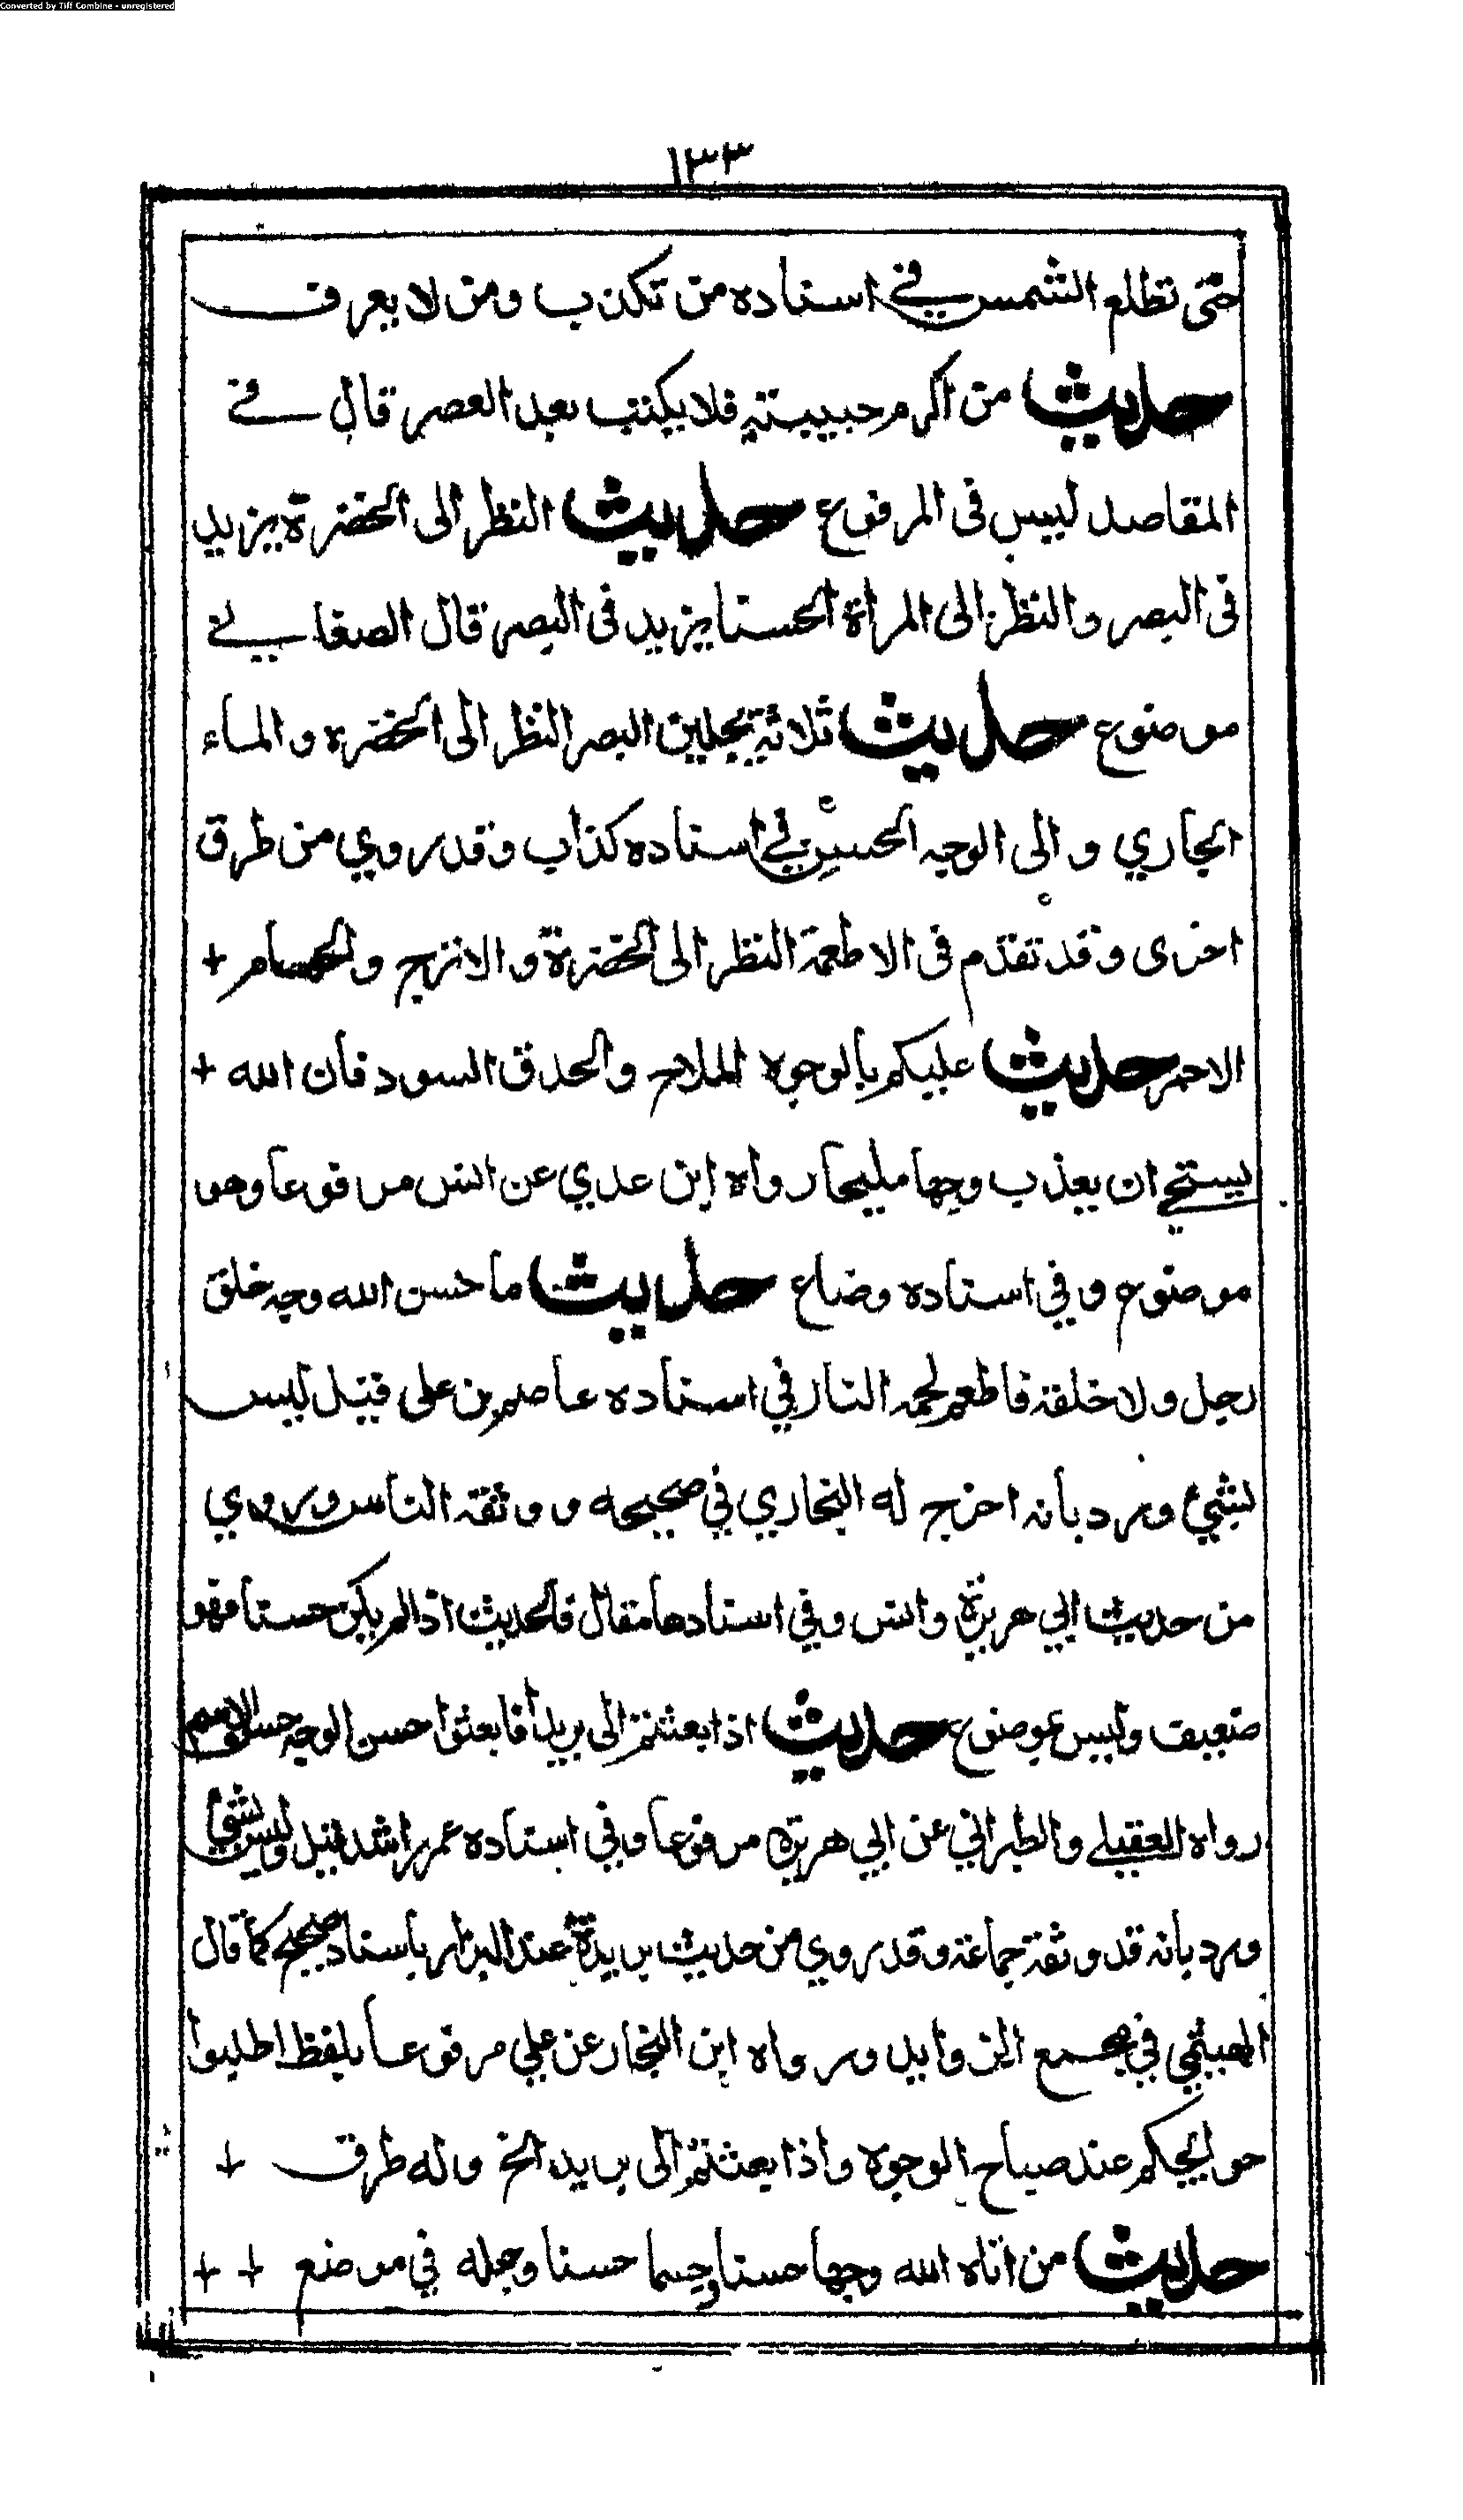 Converted by Tiff Combine - unregistered
١٣٣
حتى تطلع الشمس في اسناده من تكذب ومن لا يعرف
حديث من اكرم حبيبتيه فلا يكتب بعد العصر قال في
المقاصد ليس في المرفوع حديث النظر الى الخضرة يزيد
في البصر والنظر الى المرأة الحسنا يزيد في البصر قال الصغاني
موضوع حديث ثلاثة يجلين البصر النظر الى الخضرة والماء
الجاري والى الوجه الحسن في اسناده كذاب وقد روي من طرق
اخرى وقد تقدم في الاطعمة النظر الى الخضرة والاترج والحمام +
الاحمر حديث عليكم بالوجوه الملاح والحدق السود فان الله +
يستحي ان يعذب وجها مليحا رواه ابن عدي عن انس مرفوعا وهو
موضوع وفي اسناده وضاع حديث ما حسن الله وجه خلق
رجل ولا خلقه فاطعم لحمه النار في اسناده عاصم بن على قيل ليس
بشيئ ورد بانه اخرج له البخاري في صحيحه ووثقه الناس وروي
من حديث ابي هريرة وانس وفي اسنادها مقال فالحديث اذا لم يكن حسنا فهو
ضعيف وليس بموضوع حديث اذا بعثتم الى بريدا فابعثوا حسن الوجه حسن الاسم
رواه العقيلي والطبراني عن ابي هريرة مرفوعا وفي اسناده عمر راشد قيل وليس بشيئ
ورد بانه قد وثقه جماعة وقد روي من حديث بريدة عند البزار باسناد صحيح كما قال
الهيثمي في مجمع الزوايد ورواه ابن النجار عن علي مرفوعا بلفظ اطلبوا
حوايجكم عند صباح الوجوه واذا بعثتم الى بريد الخ وله طرق +
حديث من اتاه الله وجها حسنا وجسما حسنا وجعله في موضع + +